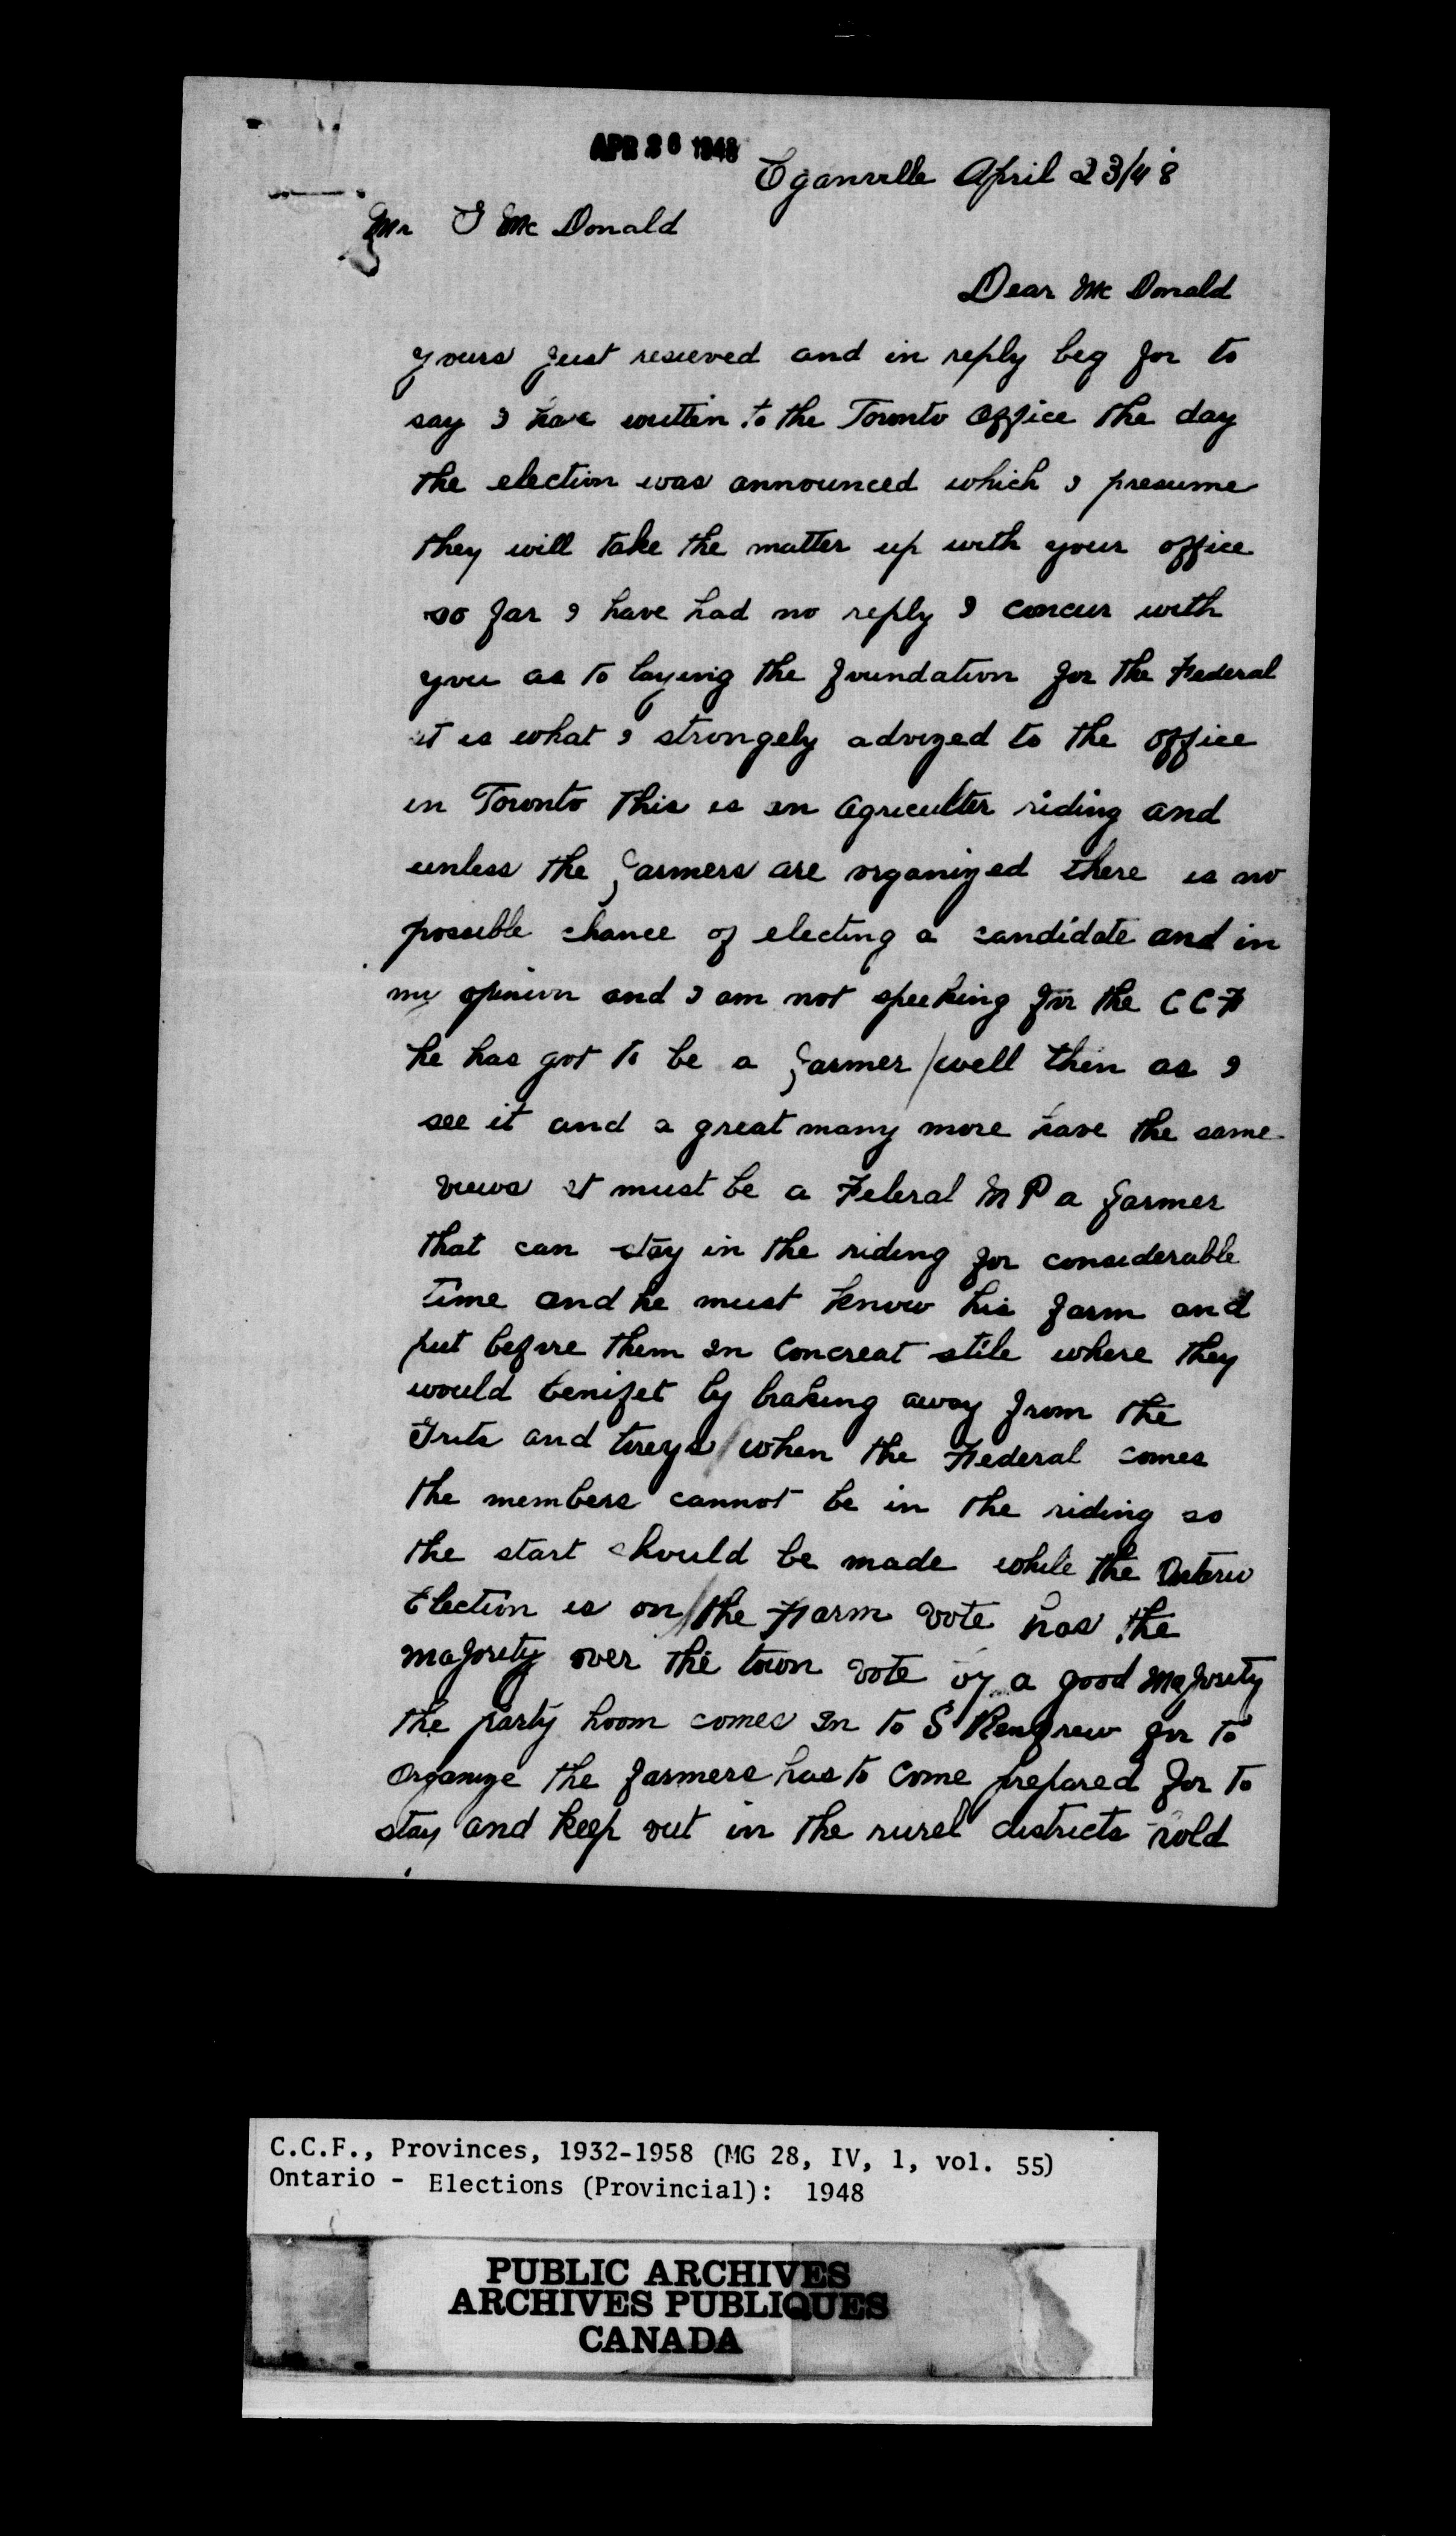 APR 26 1948
Eganville April 23/48
Mr J McDonald
Dear McDonald
yours just resieved and in reply beg for to
say I have written to the Toronto office the day
the election was announced which I presume
they will take the matter up with your office
so far I have had no reply I concur with
you as to laying the foundation for the Federal
it is what I strongely advized to the office
in Toronto this is an agriculter riding and
unless the farmers are organized there is no
possible chance of electing a candidate and in
my opinion and I am not speeking for the CCF
he has got to be a farmer / well then as I
see it and a great many more have the same
views it must be a Feleral MP a farmer
that can stay in the riding for considerable
time and he must know his farm and
put before them in concreat stile where they
would benifet by braking away from the
Grits and toreys / when the Federal comes
the members cannot be in the riding so
the start should be made while the Onterio
Election is on // the Farm vote has the
majority over the town vote by a good majority
the party hoom comes in to S Renfrew for to
organize the farmers has to come prepared for to
stay and keep out in the rurel districts hold
C.C.F., Provinces, 1932-1958 (MG 28, IV, 1, vol. 55)
Ontario - Elections (Provincial): 1948
PUBLIC ARCHIVES
ARCHIVES PUBLIQUES
CANADA